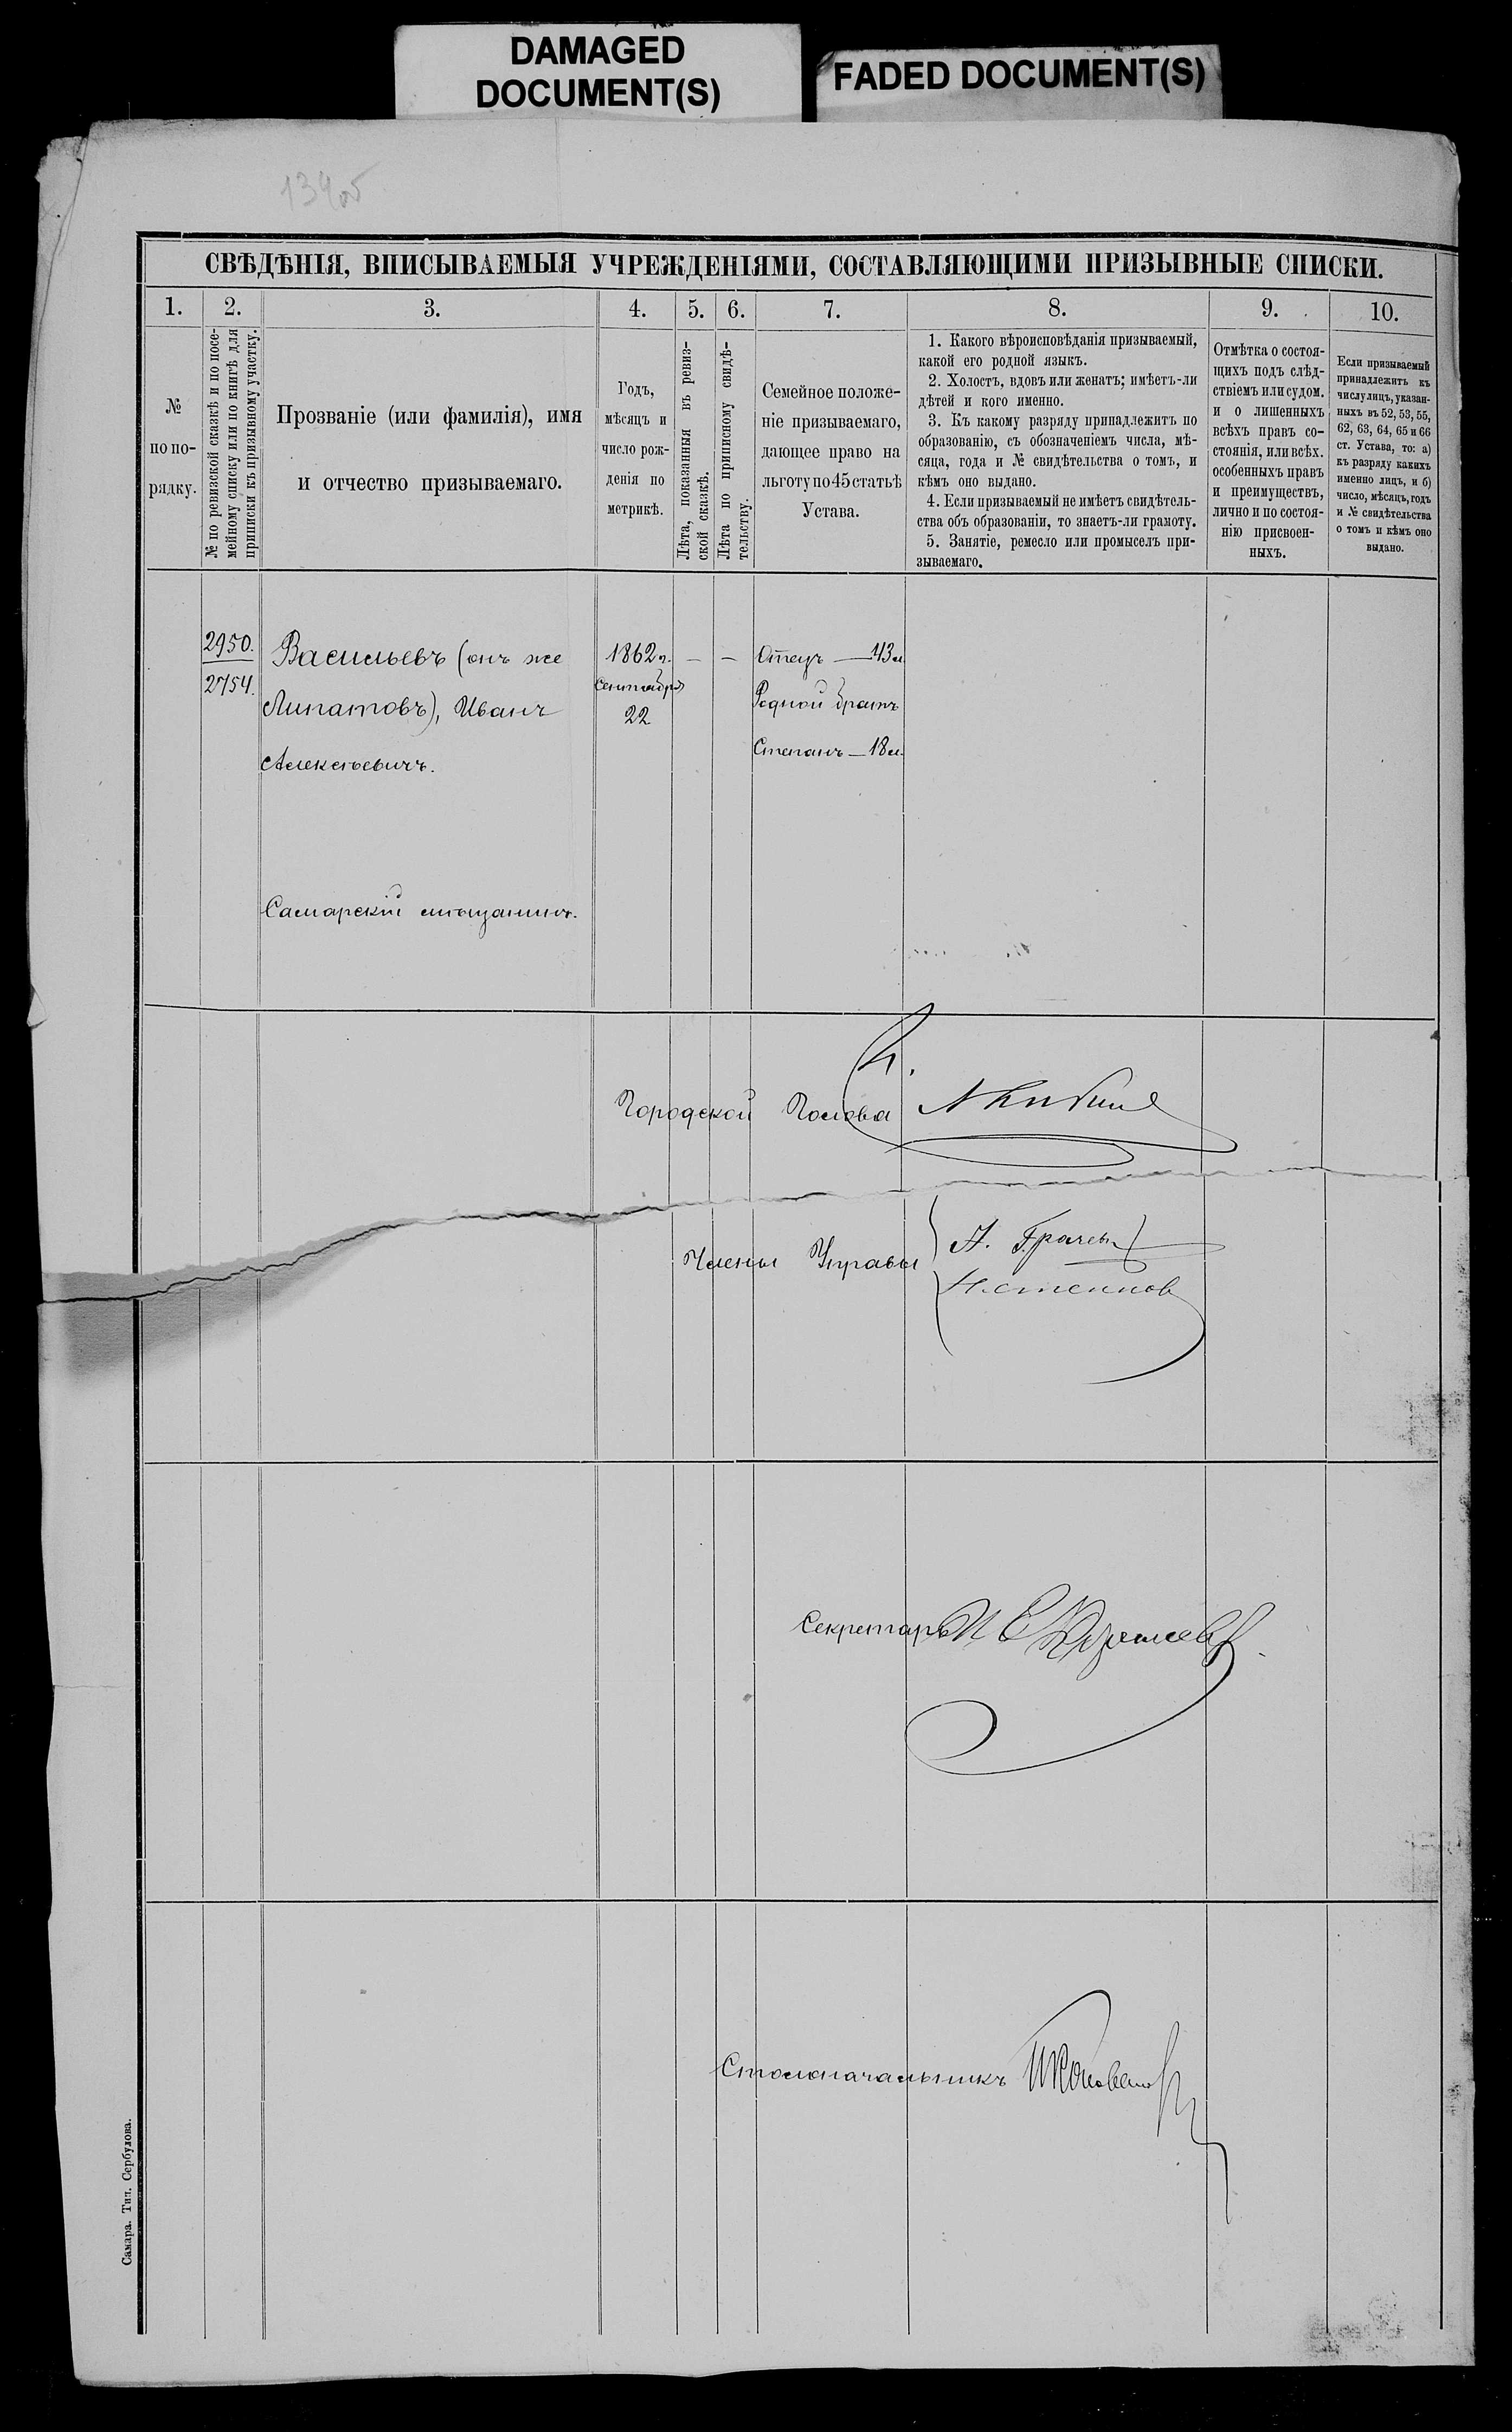 DAMAGED
DOCUMENT(S)
FADED DOCUMENT(S)
СВѢДѢНІЯ, ВПИСЫВАЕМЫЯ УЧРЕЖДЕНІЯМИ, СОСТАВЛЯЮЩИМИ ПРИЗЫВНЫЕ СПИСКИ.
1.
2.
3.
4.
5.
6.
7.
8.
9.
10.
№
по по-
рядку.
№ по ревизской сказкѣ и по посе-
мейному списку или по книгѣ для
приписки къ призывному участку.
Прозваніе (или фамилія), имя
и отчество призываемаго.
Годъ,
мѣсяцъ и
число рож-
денія по
метрикѣ.
Лѣта, показанныя въ ревиз-
ской сказкѣ.
Лѣта по приписному свидѣ-
тельству.
Семейное положе-
ніе призываемаго,
дающее право на
льготу по 45 статьѣ
Устава.
1. Какого вѣроисповѣданія призываемый,
какой его родной языкъ.
2. Холостъ, вдовъ или женатъ; имѣетъ-ли
дѣтей и кого именно.
3. Къ какому разряду принадлежитъ по
образованію, съ обозначеніемъ числа, мѣ-
сяца, года и № свидѣтельства о томъ, и
кѣмъ оно выдано.
4. Если призываемый не имѣетъ свидѣтель-
ства объ образованіи, то знаетъ-ли грамоту.
5. Занятіе, ремесло или промыселъ при-
зываемаго.
Отмѣтка о состоя-
щихъ подъ слѣд-
ствіемъ или судом.
и о лишенныхъ
всѣхъ правъ со-
стоянія, или всѣх.
особенныхъ правъ
и преимуществъ,
лично и по состоя-
нію присвоен-
ныхъ.
Если призываемый
принадлежитъ къ
числу лицъ, указан-
ныхъ въ 52, 53, 55,
62, 63, 64, 65 и 66
ст. Устава, то: а)
къ разряду какихъ
именно лицъ, и б)
число, мѣсяцъ, годъ
и № свидѣтельства
о томъ и кѣмъ оно
выдано.
2950.
2754.
Васильевъ (онъ же
Липатовъ), Иванъ
Алексѣевичъ.
Самарскій мѣщанинъ.
1862 г.
Сентября
22
—
—
Отецъ — 43 л.
Родной братъ
Степанъ — 18 л.
Городской Голова
Члены Управы
А. Грачевъ
Секретарь
Столоначальникъ
Самара. Тип. Сербулова.